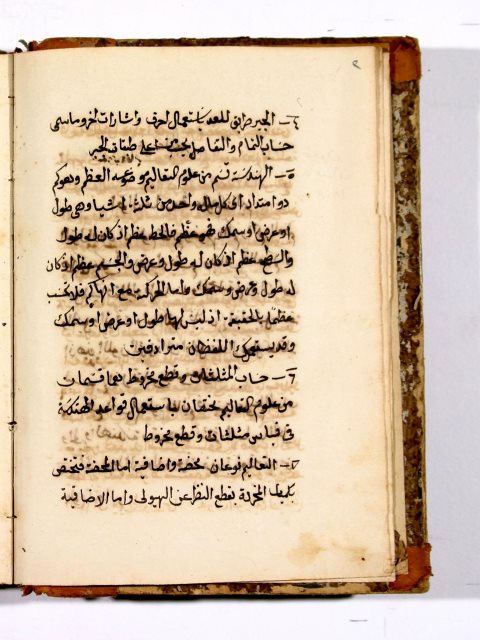 ٢
٤ــ الجبر طرايق للعد باستعمال احرف واشارات اخر وما سمى
حساب التمام والتفاصل يبحث على طبقات الجبر
٥ــ الهندسة قسم من علوم التعاليم موضوعه العظم وهو كم
ذو امتداد اى كل مال واحد من ثلثة اشيا وهى طول
او عرض او سمك فهو عظم فالخط عظم اذ كان له طول
والسطح عظم اذ كان له طول وعرض والجسم عظم اذ كان
له طول وعرض وسمك واما الحركة مع انها كم فلا تحسب
عظما بالحقيقة اذ ليس لها طول او عرض او سمك
وقد يستعمل اللفظان مترادفين
٦ــ حساب المثلثات وقطع مخروط هما قسمان
من علوم التعاليم يختصان باستعمال قواعد الهندسة
فى قياس مثلثات وقطع مخروط
٧ــ التعاليم نوعان محضة واضافية اما المحضة فتختص
بكميات المجردة بقطع النظر عن الهيولى واما الاضافية